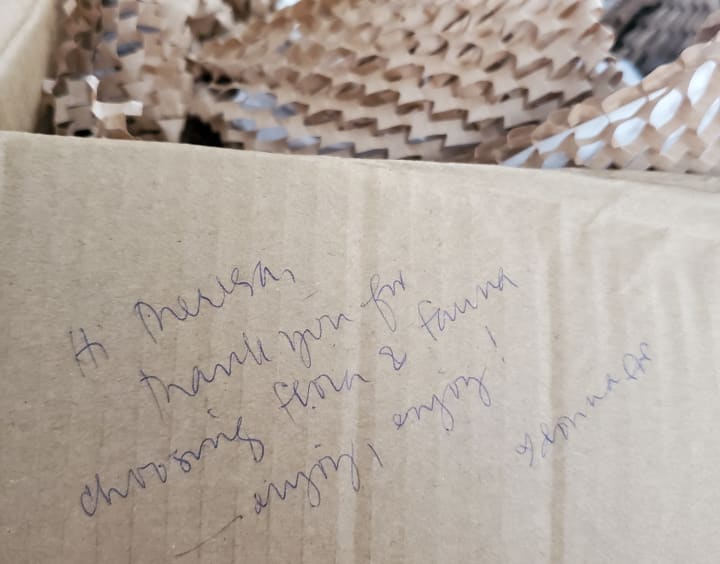 Hi Theresa,
thank you for
choosing flora & fauna
enjoy, enjoy!